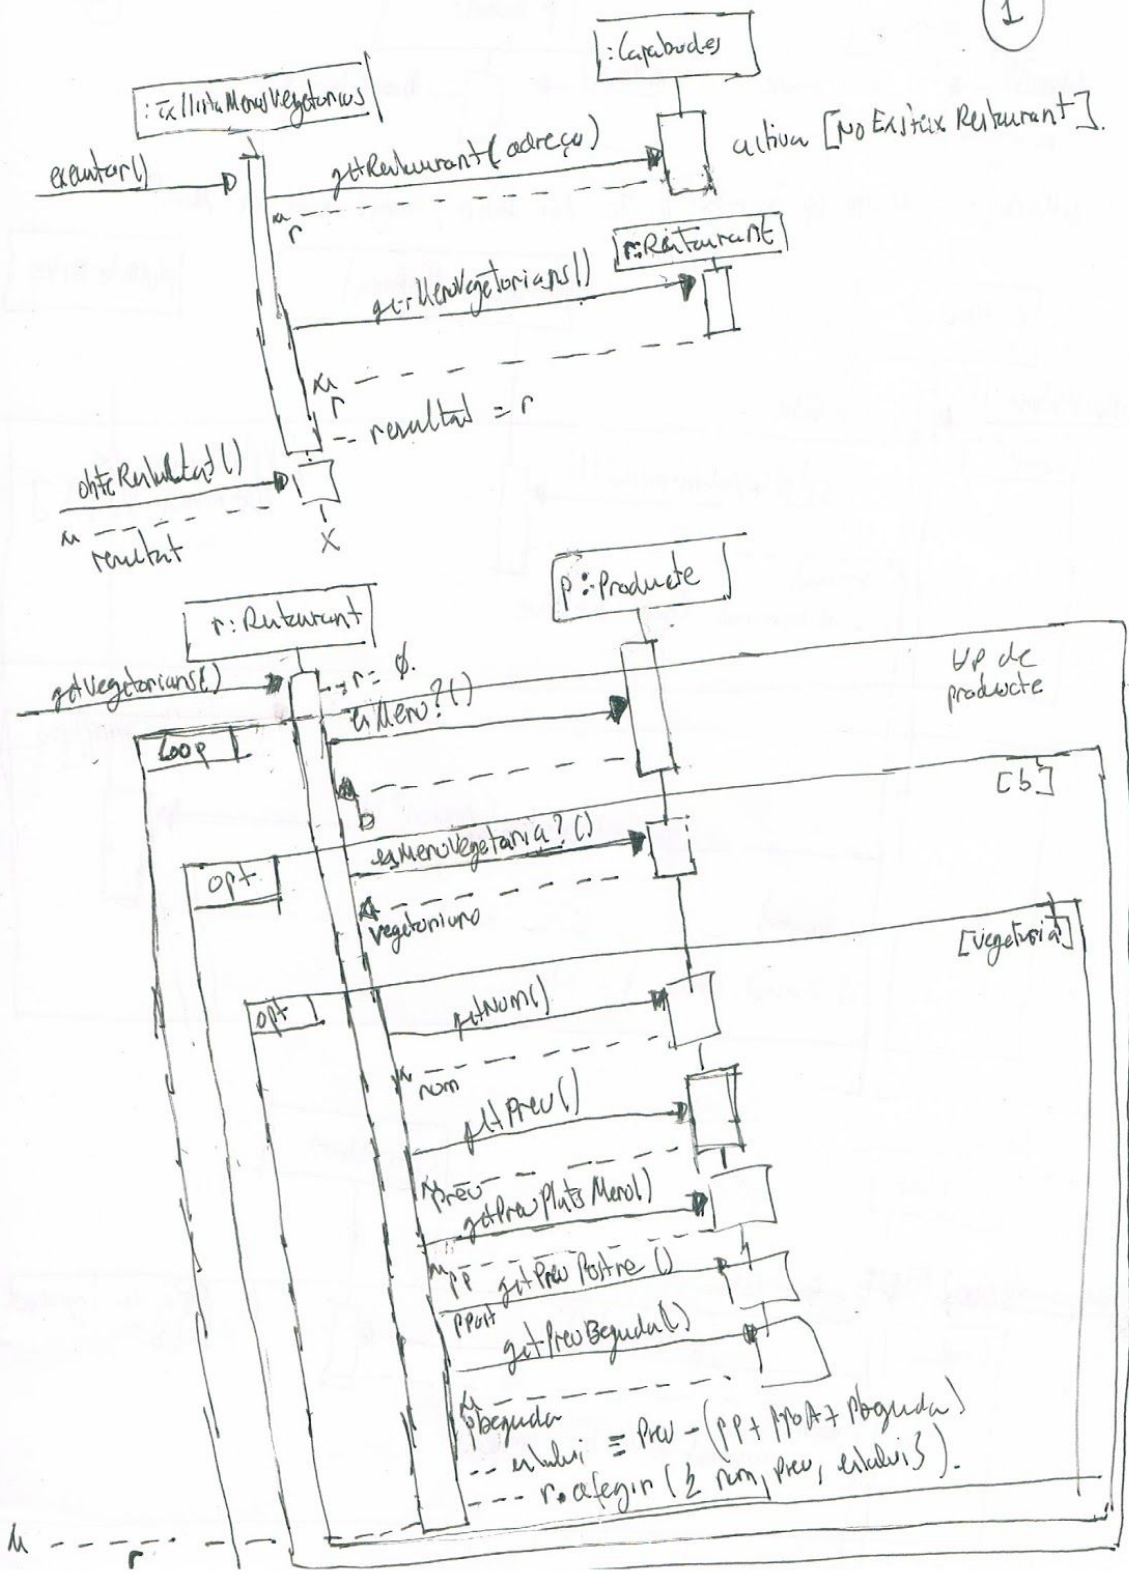 1
:CapaDades
:TxLlistaMenusVegetarians
executar()
getRestaurant(adreça)
activa [No Existeix Restaurant].
r
r:Restaurant
getMenuVegetarians()
r
resultat = r
obteResultat()
resultat
X
p:Producte
r:Restaurant
getVegetarians()
r = ∅.
∀p de
producte
esMenu?()
Loop
b
[b]
esMenuVegetaria?()
opt
vegetariano
[vegetaria]
opt
getNom()
nom
getPreu()
preu
getPreuPlatsMenu()
PP
getPreuPostre()
PPost
getPreuBeguda()
pbeguda
= Preu - (PP + PPost + Pbeguda)
r.afegir({ nom, preu, })
r